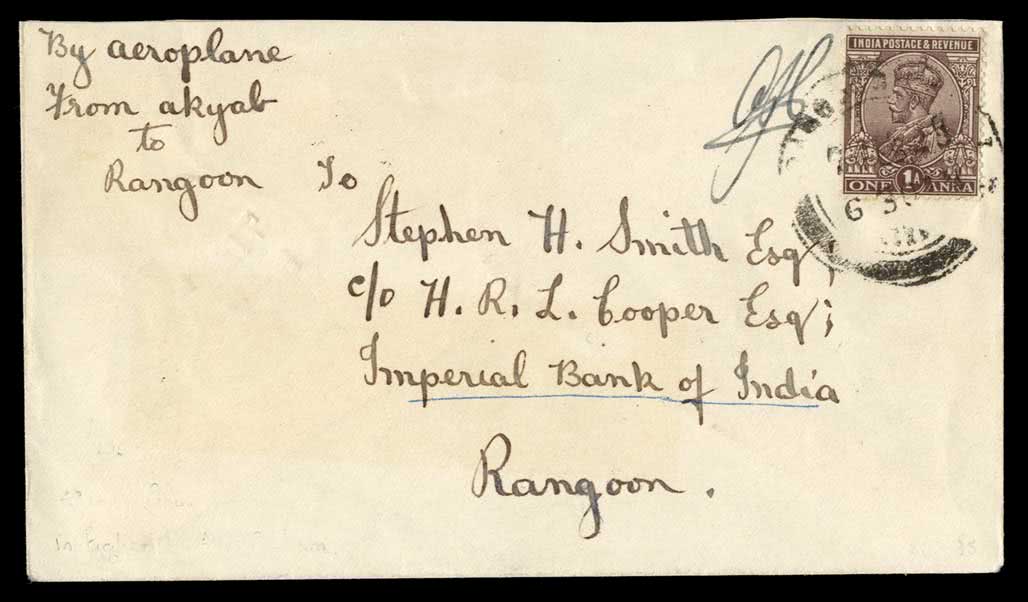 By aeroplane
From akyab
to
Rangoon
To
Stephen H. Smith Esq,
c/o H. R. L. Cooper Esq;
Imperial Bank of India
Rangoon.
INDIA POSTAGE & REVENUE
ONE 1A ANNA